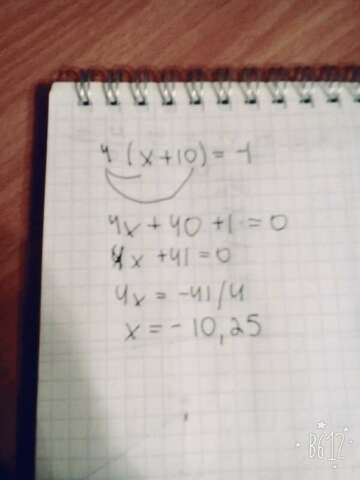 4 (x+10) = -1
4x + 40 + 1 = 0
4x + 41 = 0
4x = -41/4
x = - 10,25
B612